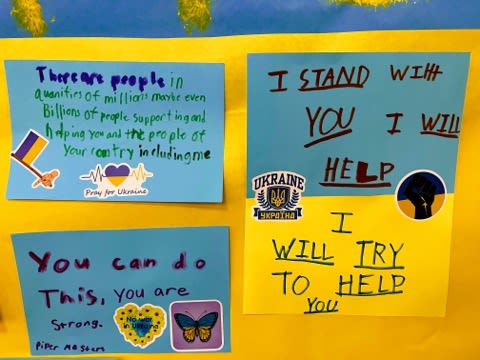 There are people in
quanities of millions maybe even
Billions of people supporting and
helping you and the people of
your contry including me
Pray for Ukraine
I STAND WITH
YOU I WILL
HELP
UKRAINE
УКРАЇНА
I
WILL TRY
TO HELP
YOU
You can do
This, you are
Strong.
No war
in Ukraine
Piper Masters